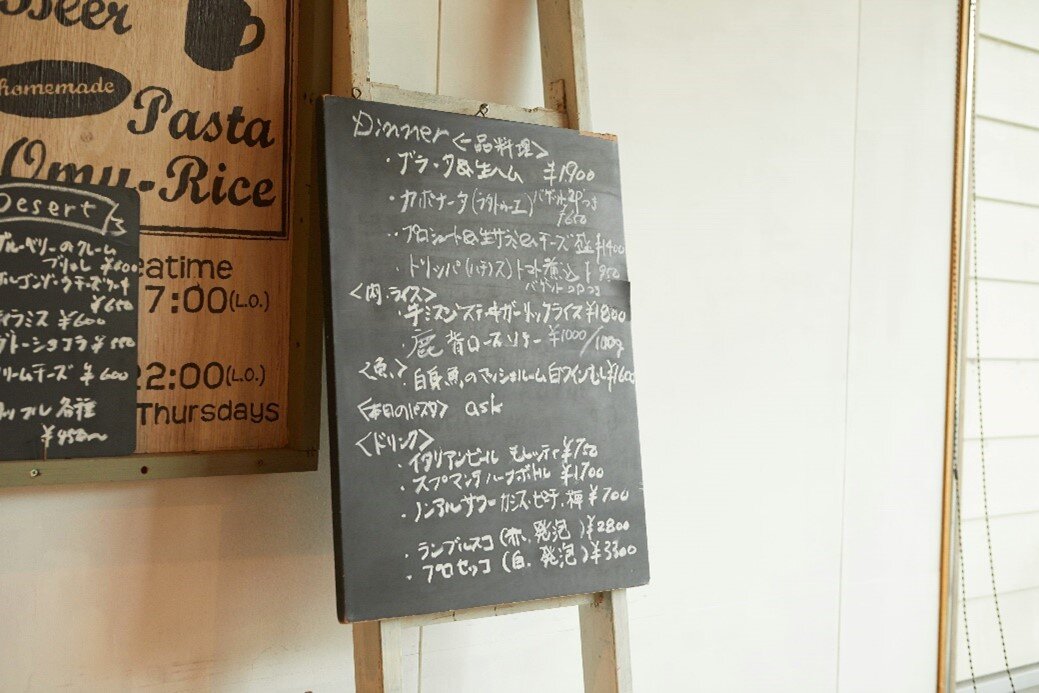 Beer
homemade
Pasta
Omu-Rice
eatime
7:00(L.O.)
22:00(L.O.)
Thursdays
Desert
ブルーベリーのクレーム
ブリュレ ¥600
ゴルゴンゾーラチーズケーキ
¥650
ティラミス ¥600
ガトーショコラ ¥550
クリームチーズ ¥600
ワッフル各種
¥450〜
Dinner <一品料理>
・ブラータ&生ハム ¥1900
・カポナータ(ラタトゥーユ) バゲット2Pつき
¥650
・プロシュート&生サラミ&チーズ盛 ¥1400
・トリッパ(ハチノス)トマト煮込み 950
バゲット2Pつき
<肉・ライス>
・牛ミスジステーキガーリックライス ¥1800
・鹿 背ロースソテー ¥1000/100g
<魚>
・白身魚のマッシュルーム白ワインむし ¥1600
<本日のパスタ> ask
<ドリンク>
・イタリアンビール モレッティ ¥750
・スプマンテ ハーフボトル ¥1700
・ノンアルサワー カシス・ピーチ・梅 ¥700
・ランブルスコ(赤、発泡)¥2800
・プロセッコ(白、発泡)¥3300